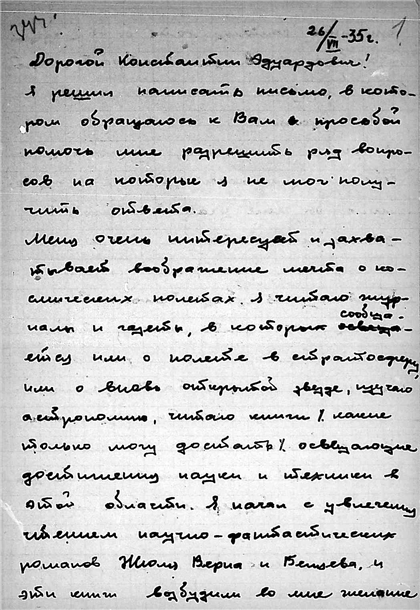 26/VII-35г. 1
Дорогой Константин Эдуардович!
Я решил написать письмо, в кото-
ром обращаюсь к Вам с просьбой
помочь мне разрешить ряд вопро-
сов на которые я не мог полу-
чить ответа.
Меня очень интересует и захва-
тывает воображение мечта о ко-
смических полетах. Я читаю жур-
сообща-
налы и газеты, в которых освеща-
ется или о полете в стратосферу
или о вновь открытой звезде, изучаю
астрономию, читаю книги / какие
только могу достать / освещающие
достижения науки и техники в
этой области. Я начал с увлечения
чтением научно-фантастических
романов Жюля Верна и Беляева, и
эти книги возбудили во мне желание